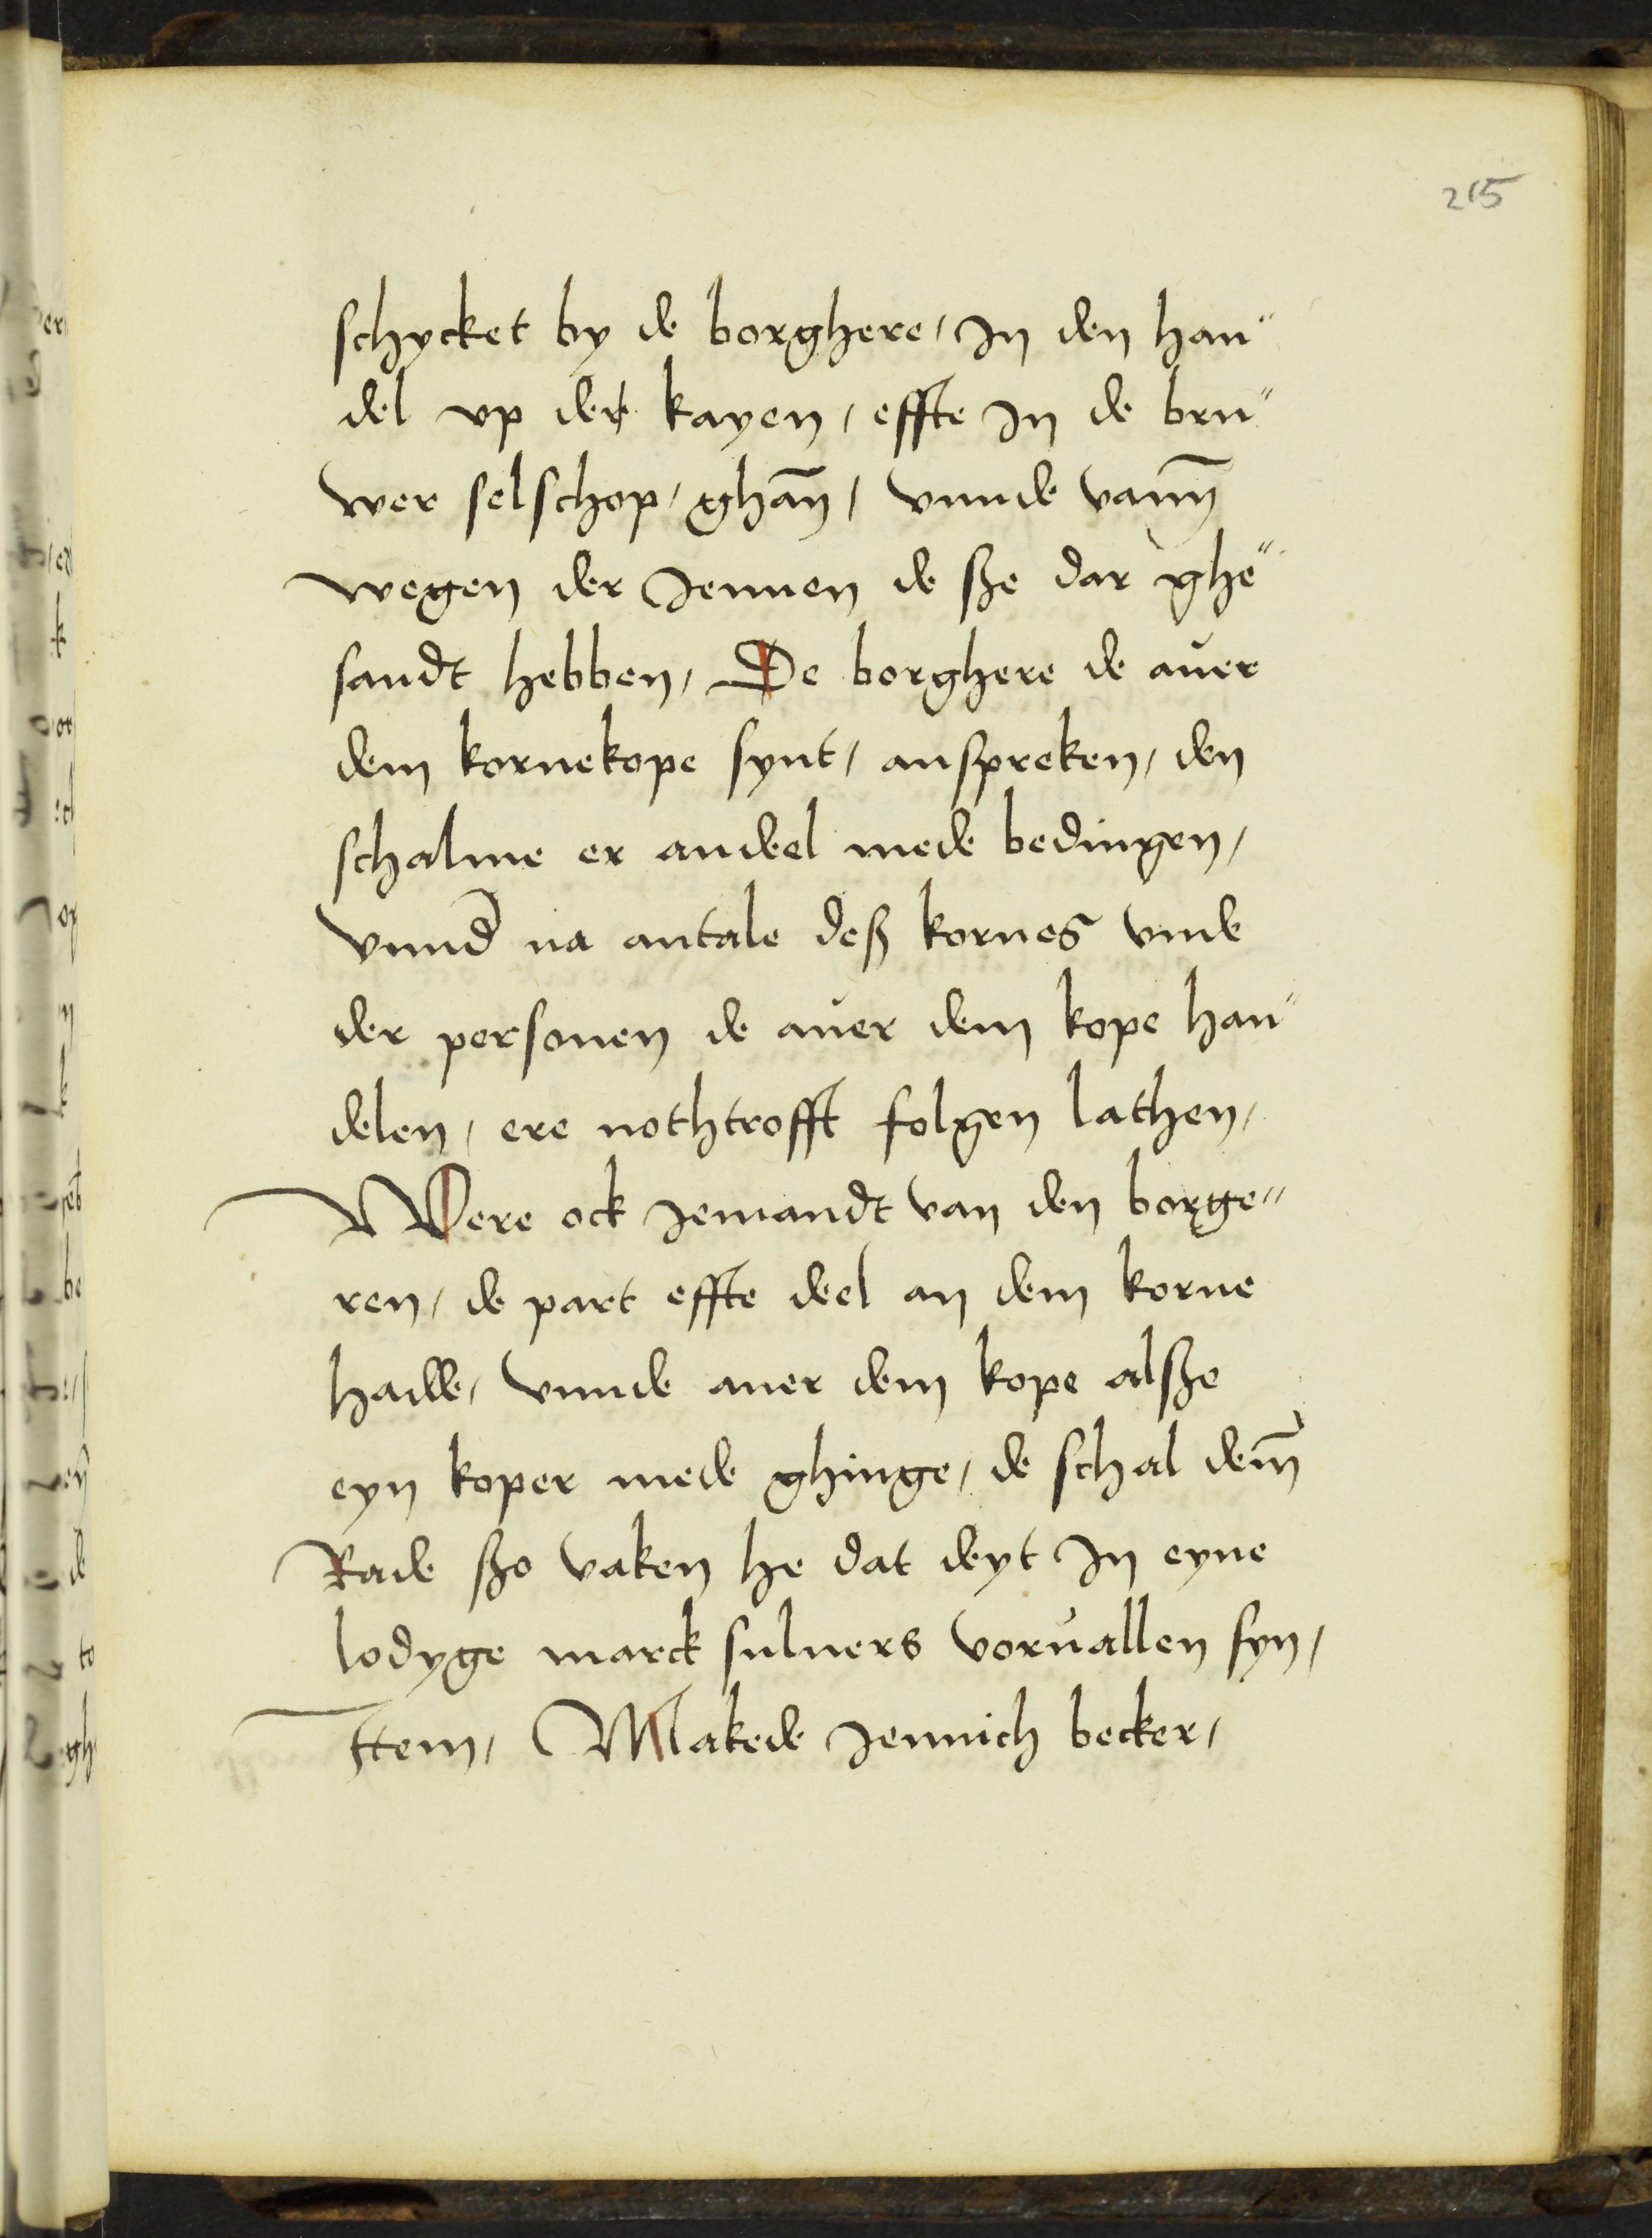 215
schycket by de borghere, In den han"
del vp der kayen, effte In de bru"
wer selschop, ghan̄, vnnde vann̄
wegen der Jennen de sße dar ghe"
sandt hebben, De borghere de auer
dem kornekope synt, anspreken, den
schalme er andeel mede bedingen,
vnnd na antale deß kornes vnde
der personen de auer dem kope han"
delen, ere nothtrofft folgen lathen,
Were ock Jemandt van den borge"
ren, de part effte deel an dem korne
hadde, vnnde auer dem kope alsße
eyn koper mede ghinge, de schal dem̄
Rade sßo vaken he dat deyt In eyne
lodyge marck suluers voruallen syn,
Ittem, Makede Jennich becker,